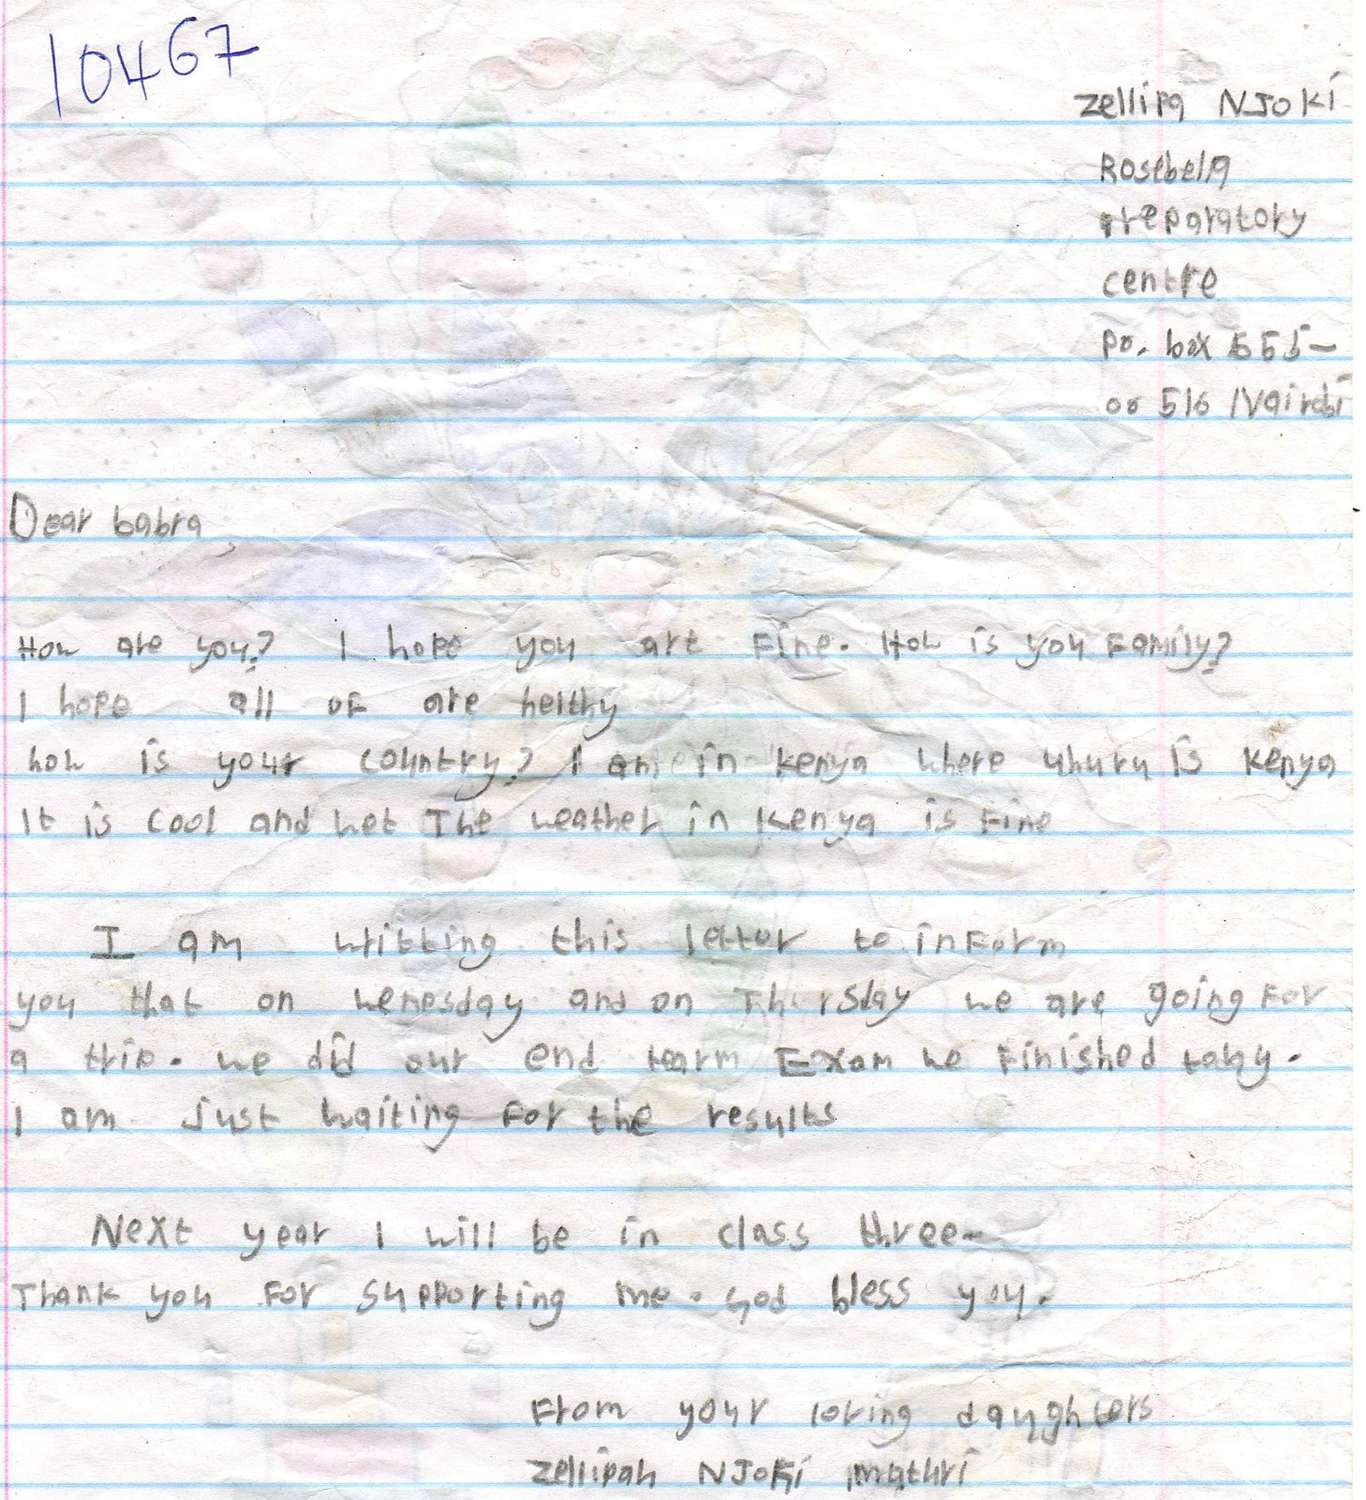 10467
zellipa NJoki
Rosebella
preparatory
centre
po. box 555-
00 516 Nairobi
Dear babra
How are you? I hope you are Fine. How is you Family?
I hope all of are helthy
how is your country? I am in kenya where uhuru is kenya
It is cool and wet The weather in kenya is Fine
I am writting this letter to inForm
you that on wenesday and on Thursday we are going For
a trip. we did our end tearm Exam we Finished today.
I am Just waiting For the results
Next year I will be in class three-
Thank you For supporting me. God bless you.
From your loving daughters
zellipah NJoki muthri